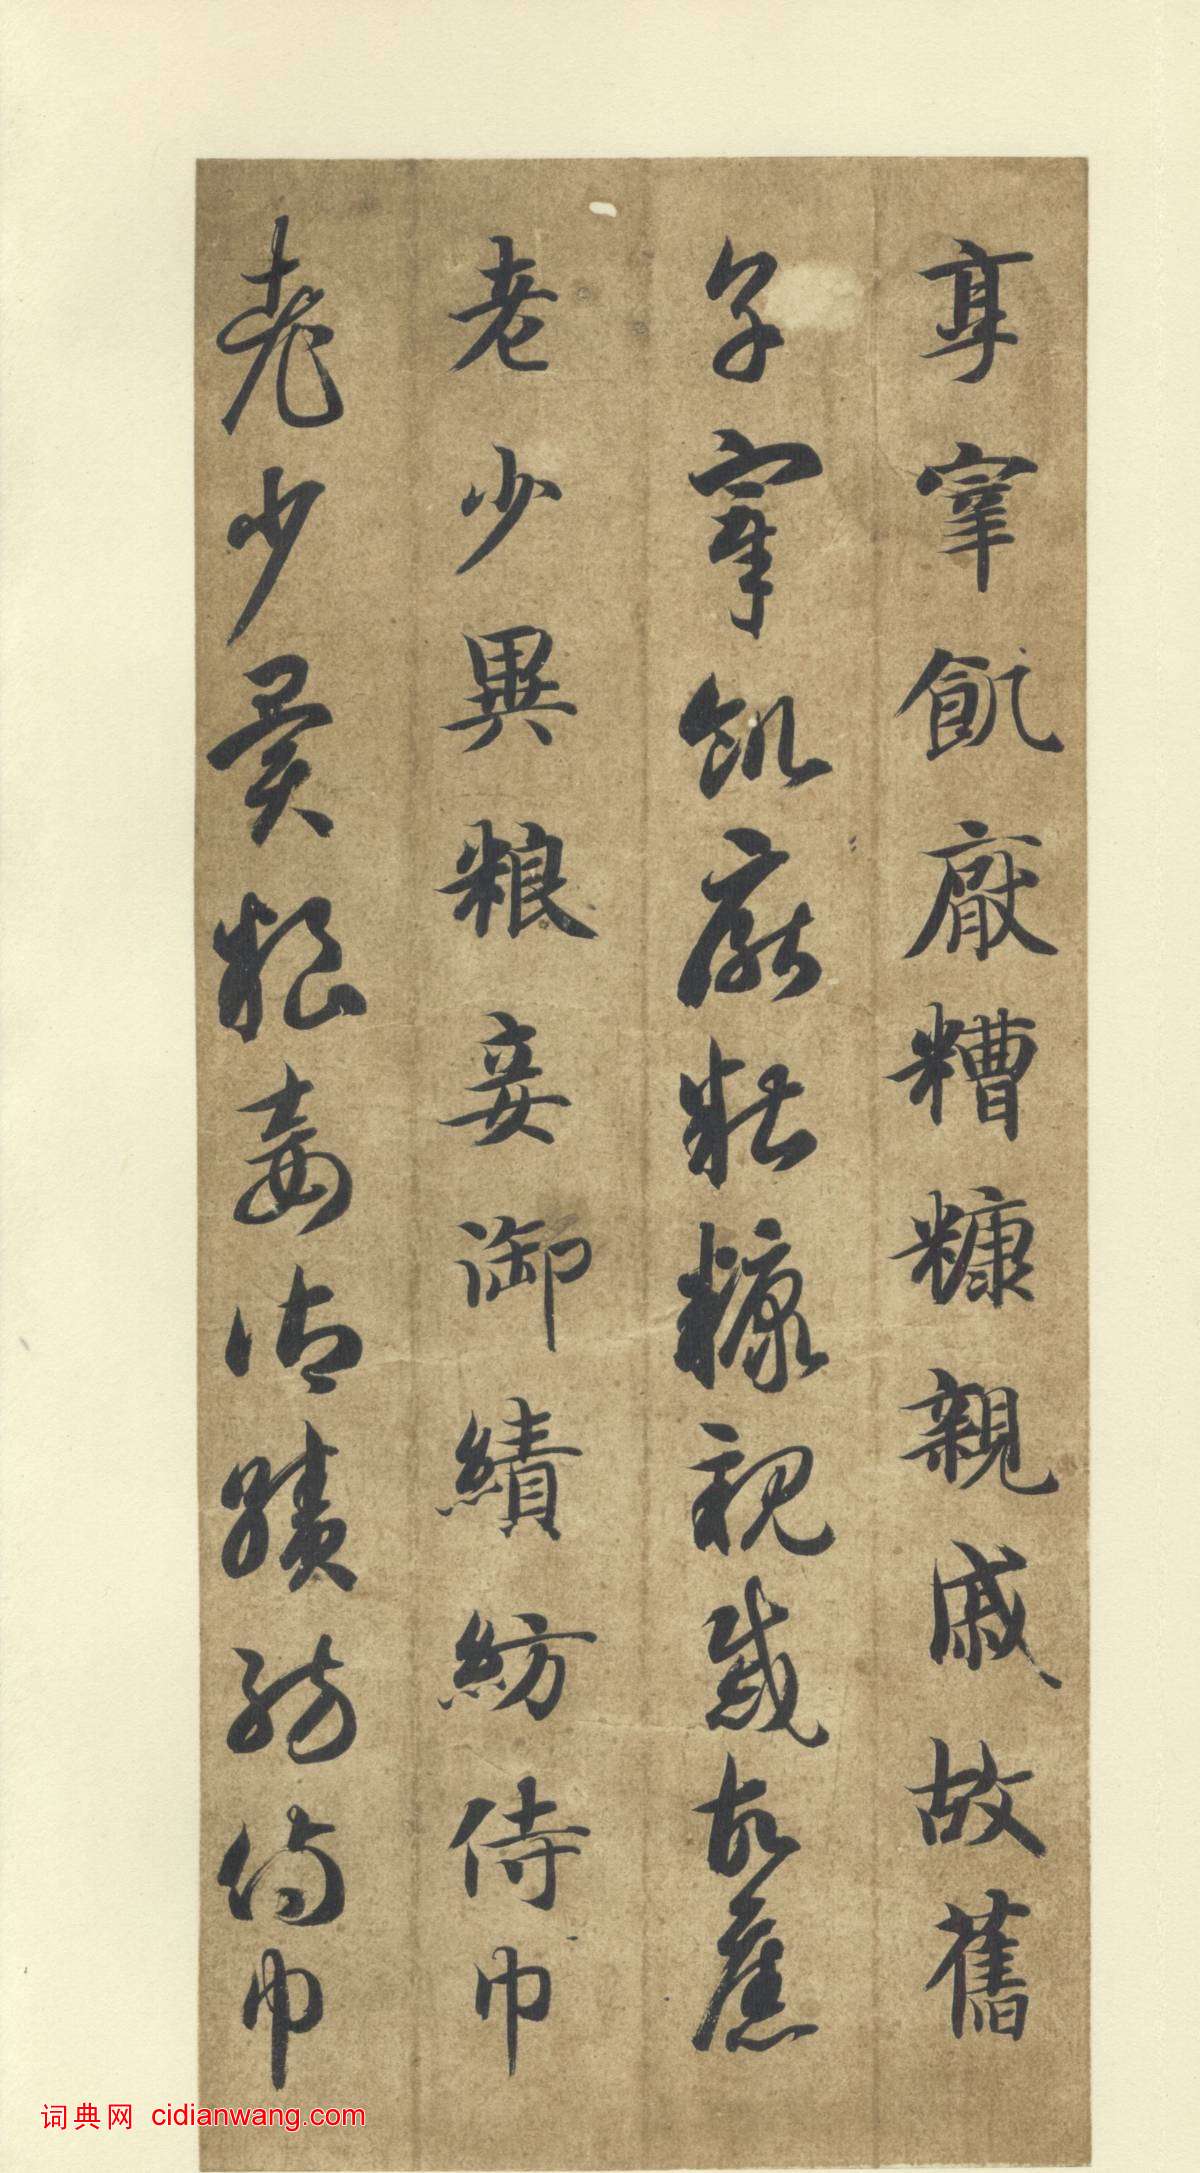 享宰飢厭糟糠親戚故舊
享宰飢厭糟糠親戚故舊
老少異粮妾御績紡侍巾
老少異粮妾御績紡侍巾
词典网 cidianwang.com